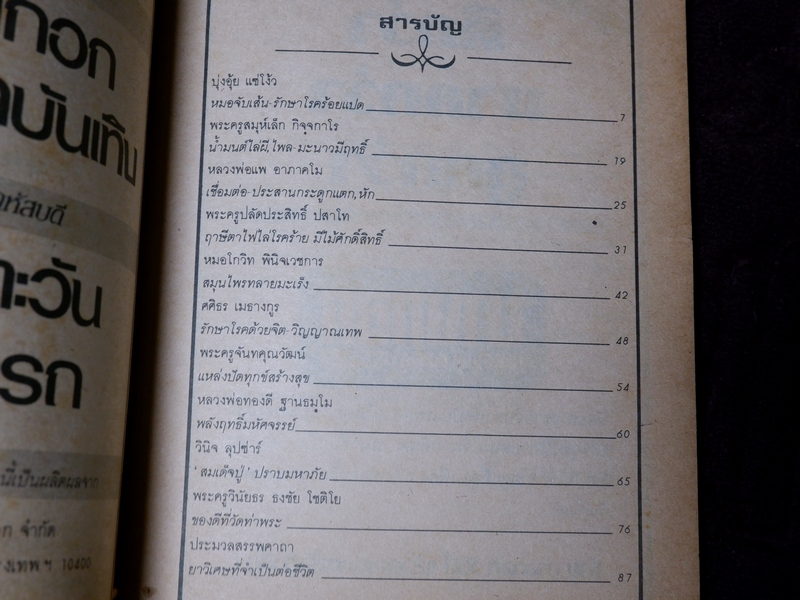 สารบัญ
บุ่งอุ้ย แซ่โง้ว
หมอจับเส้น-รักษาโรคร้อยแปด 7
พระครูสมุห์เล็ก กิจฺจกาโร
น้ำมนต์ไล่ผี, ไพล-มะนาวมีฤทธิ์ 19
หลวงพ่อแพ อาภาคโม
เชื่อมต่อ-ประสานกระดูกแตก, หัก 25
พระครูปลัดประสิทธิ์ ปสาโท
ฤาษีตาไฟไล่โรคร้าย มีไม้ศักดิ์สิทธิ์ 31
หมอโกวิท พินิจเวชการ
สมุนไพรทลายมะเร็ง 42
ศศิธร เมธางกูร
รักษาโรคด้วยจิต-วิญญาณเทพ 48
พระครูจันทคุณวัฒน์
แหล่งปัดทุกข์สร้างสุข 54
หลวงพ่อทองดี ฐานธมฺโม
พลังฤทธิ์มหัศจรรย์ 60
วินิจ ลุปซ่าร์
'สมเด็จปู่' ปราบมหาภัย 65
พระครูวินัยธร ธงชัย โชติโย
ของดีที่วัดท่าพระ 76
ประมวลสรรพคาถา
ยาวิเศษที่จำเป็นต่อชีวิต 87
บันเทิง
หัสบดี
ะวัน
รถ
นี้เป็นผลิตผลจาก
จำกัด
กรุงเทพฯ 10400